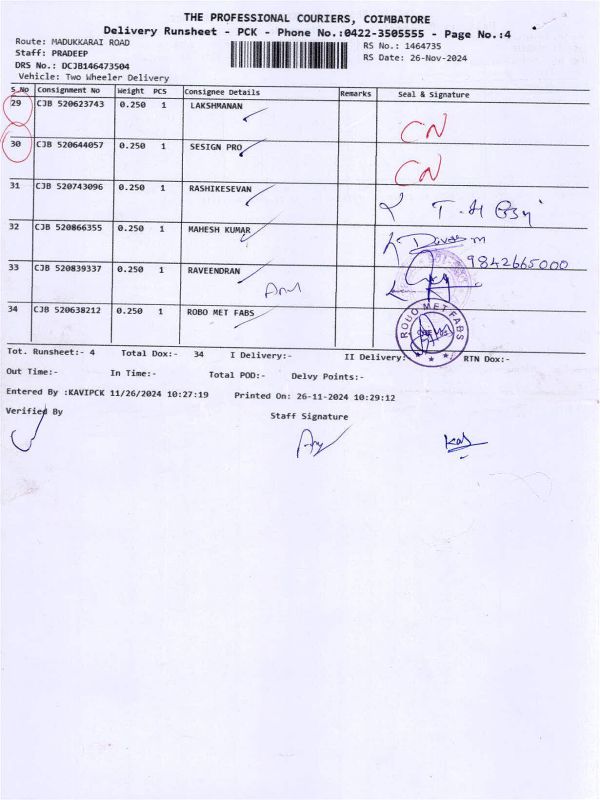 THE PROFESSIONAL COURIERS, COIMBATORE
Delivery Runsheet - PCK - Phone No.:0422-3505555 - Page No.:4
Route: MADUKKARAI ROAD
RS No.: 1464735
Staff: PRADEEP
RS Date: 26-Nov-2024
DRS No.: DCJB146473504
Vehicle: Two Wheeler Delivery
S.No Consignment No Weight PCS Consignee Details Remarks Seal & Signature
29 CJB 520623743 0.250 1 LAKSHMANAN CN
30 CJB 520644057 0.250 1 SESIGN PRO CN
31 CJB 520743096 0.250 1 RASHIKESEVAN
32 CJB 520866355 0.250 1 MAHESH KUMAR
9842665000
33 CJB 520839337 0.250 1 RAVEENDRAN
34 CJB 520638212 0.250 1 ROBO MET FABS ROBO MET FABS
Tot. Runsheet:- 4 Total Dox:- 34 I Delivery:- II Delivery: RTN Dox:-
Out Time:- In Time:- Total POD:- Delvy Points:-
Entered By :KAVIPCK 11/26/2024 10:27:19 Printed On: 26-11-2024 10:29:12
Verified By
Staff Signature